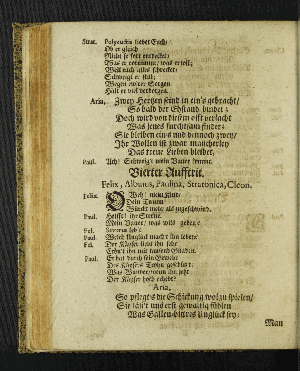 Strat. Polyeuctis liebet Euch/
Ob er gleich
Nicht so fort entdecket/
Was er
Weil auch alles schrecket/
Schweigt er still/
Wegen
Hält er viel verborgen.
Aria. Zwey Hertzen seind in ein's gebracht/
So bald der Ehstand bindet:
Doch wird von diesem offt veracht
Was jenes furchtsam findet.
Sie bleiben eins und dennoch zwey/
Ihr Wollen ist zwar mancherley
Das treue Lieben bleibet.
Paul. Ach! Schweigt mein Vater kömmt.
Vierter Aufftrit.
Felix, Albinus, Paulina, Stratonica, Cleon.
Felix. O Weh! mein Kind
Dein Traum
Würckt mehr als zu geschwind.
Paul. Helfft ihr Sterne.
Mein Vater/ was wilt geben
Fel. Severus lebt!
Paul Welch Unglück macht ihn leben:
Fel. Der Käyser liebt ihn sehr
Erhört ihn mit tausend Gnaden.
Paul. Er hat durch sein Gewehr
Des Käysers Thron geschützt:
Was Wunder/ wenn ihn jetzt
Der Käyser hoch erhebt?
Aria.
So pflegt's die Schickung wol zu spielen/
Sie läst uns erst gewaltig fühlen
Was Gallen-bittres Unglück sey:
Man